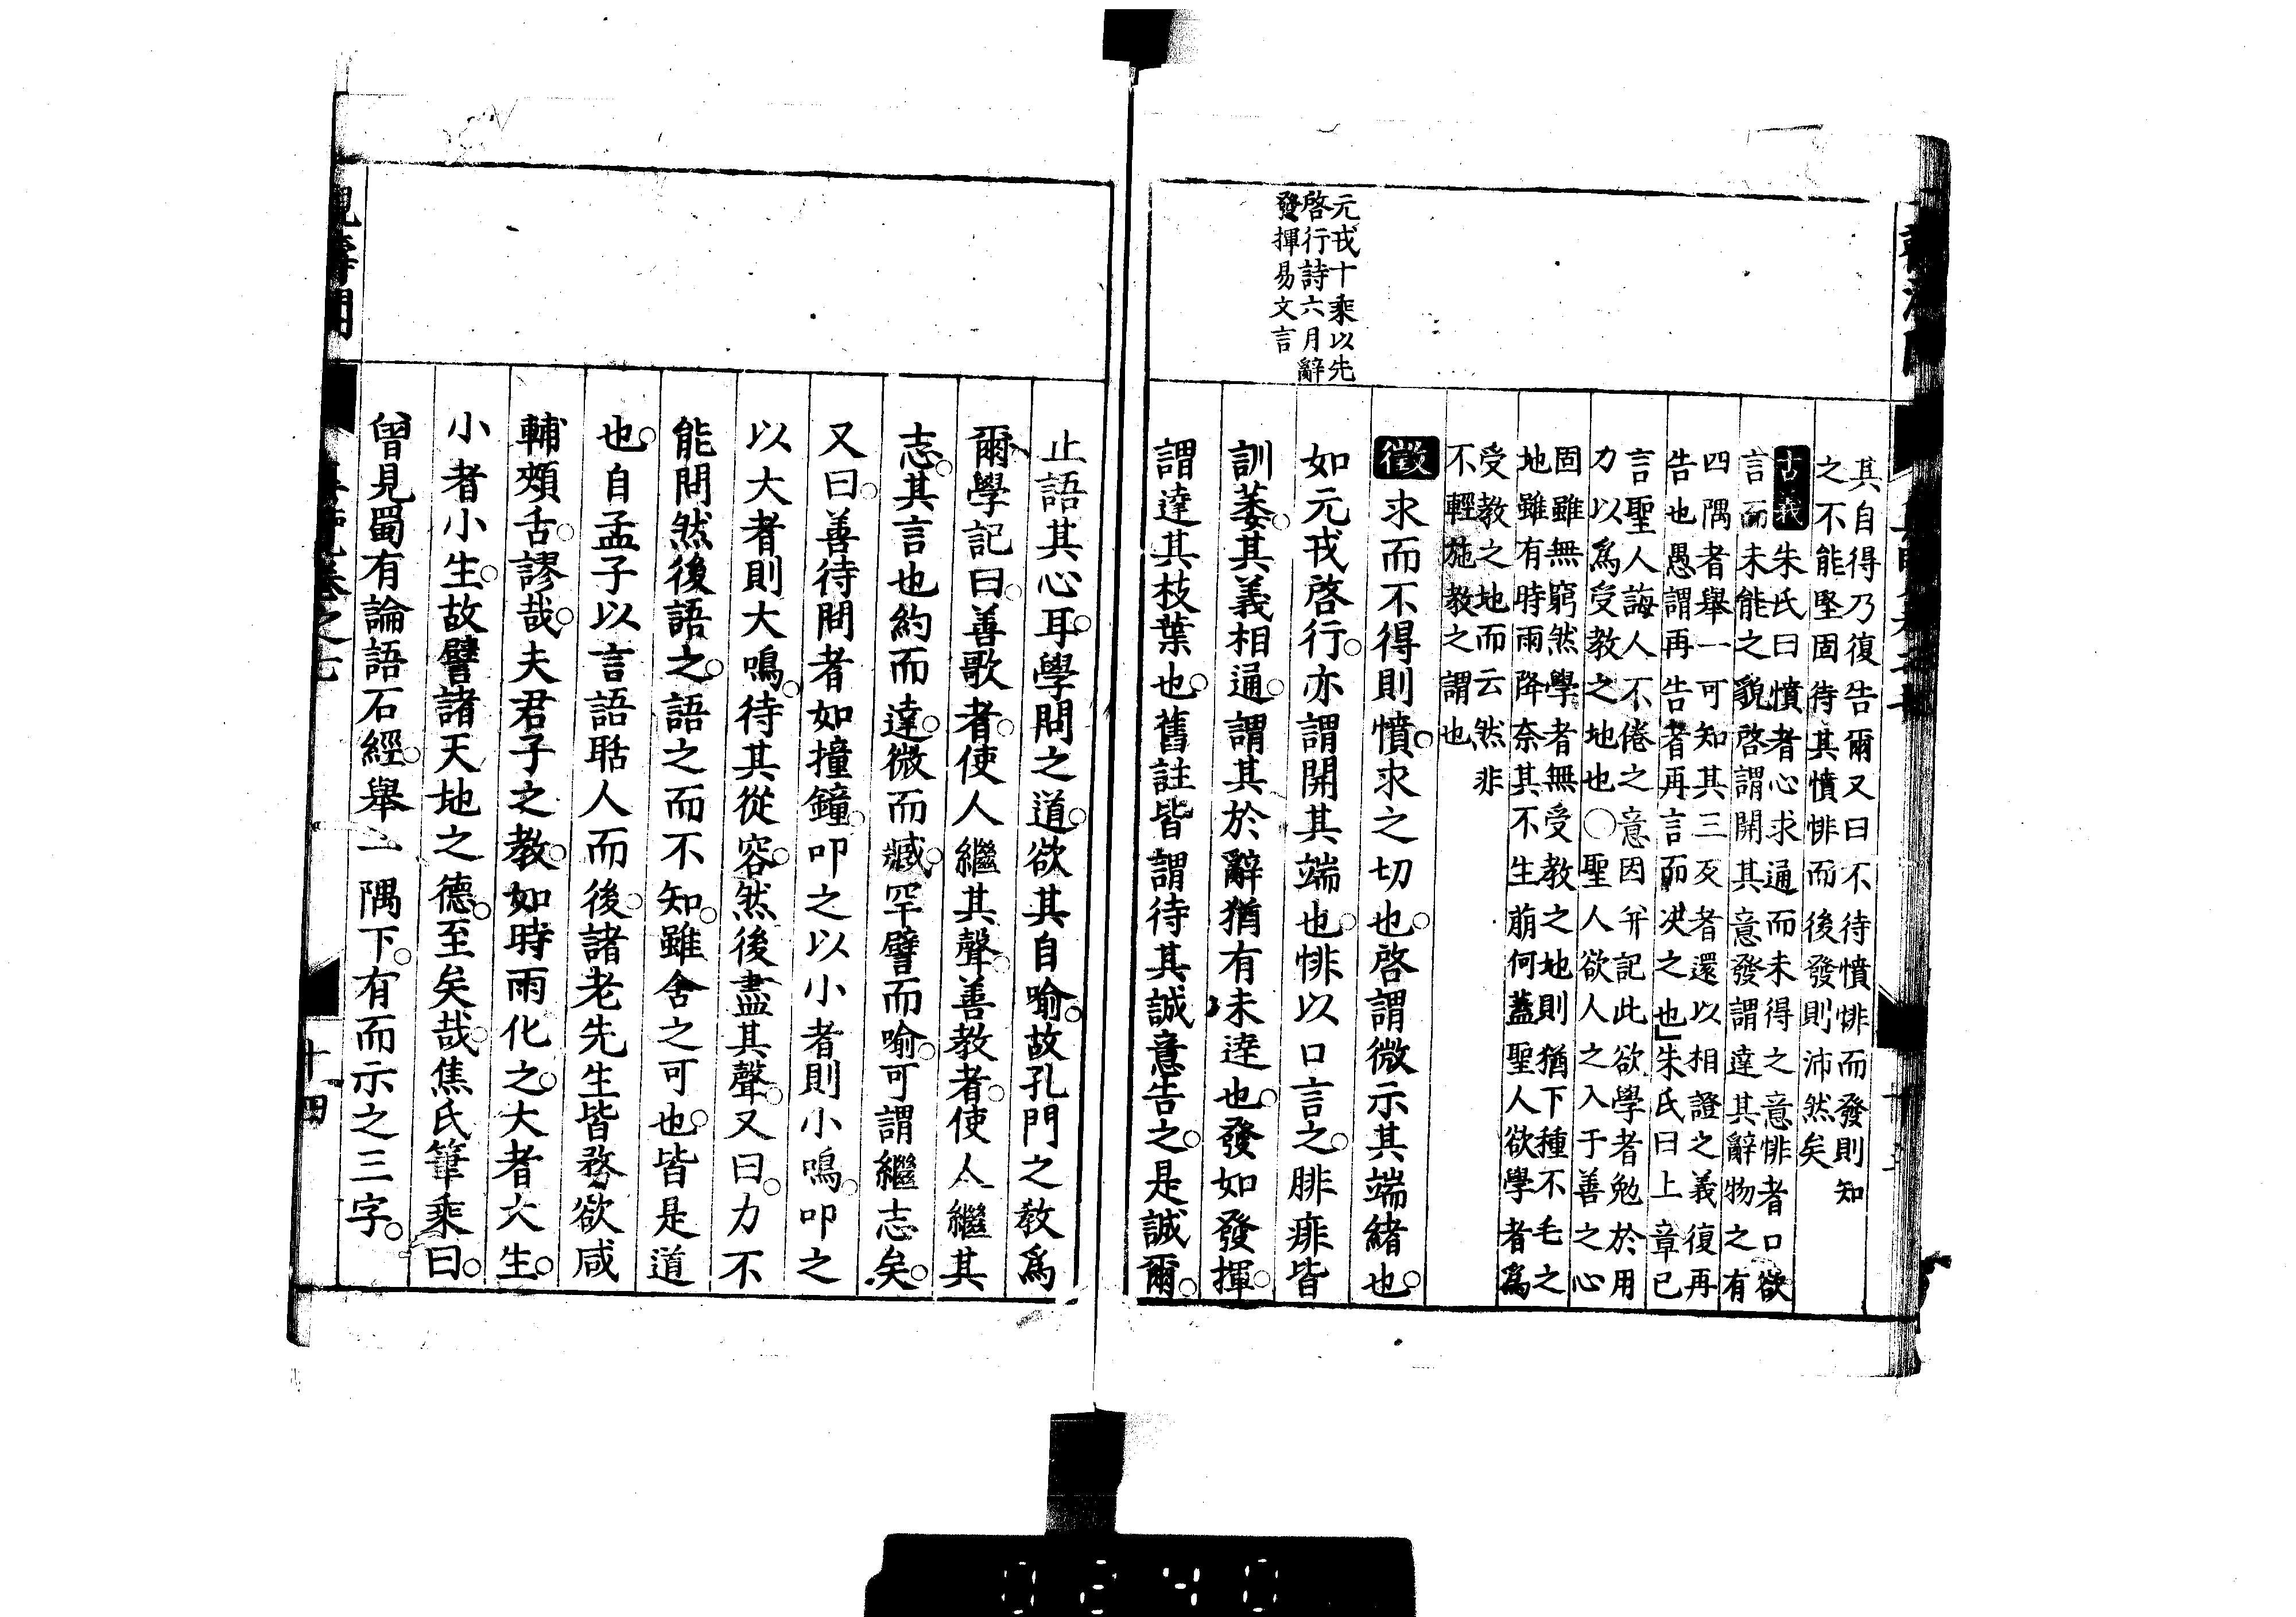 元戎十乘以先
啓行詩六月辭
發揮易文言
其自得乃復告爾又曰不待憤悱而發則知
之不能堅固待其憤悱而後發則沛然矣
古義
朱氏曰憤者心求通而未得之意悱者口欲
言而未能之貌啓謂開其意發謂達其辭物之有
四隅者舉一可知其三反者還以相證之義復再
告也愚謂再告者再言而決之也朱氏曰上章已
言聖人誨人不倦之意因幷記此欲學者勉於用
力以爲受教之地也○聖人欲人之入于善之心
固雖無窮然學者無受教之地則猶下種不毛之
地雖有時雨降奈其不生萠何蓋聖人欲學者爲
受教之地而云然非
不輕施教之謂也
徵求而不得則憤○求之切也○啓謂微示其端緒也○
如元戎啓行○亦謂開其端也○悱以口言之○腓痱皆
訓萎○其義相通○謂其於辭猶有未達也○發如發揮○
謂達其枝葉也○舊註皆謂待其誠意告之○是誠爾○
止語其心耳○學問之道○欲其自喻○故孔門之教爲
爾學記曰○善歌者○使人繼其聲○善教者○使人繼其
志○其言也約而達○微而臧○罕譬而喻○可謂繼志矣○
又曰○善待問者如撞鐘○叩之以小者則小鳴○叩之
以大者則大鳴○待其從容○然後盡其聲○又曰○力不
能問然後語之○語之而不知○雖舍之可也○皆是道
也○自孟子以言語聒人而後○諸老先生皆務欲咸
輔頰舌○謬哉○夫君子之教○如時雨化之○大者大生○
小者小生○故譬諸天地之德○至矣哉○焦氏筆乘曰○
曾見蜀有論語石經○舉一隅下○有而示之三字○
十四
0240